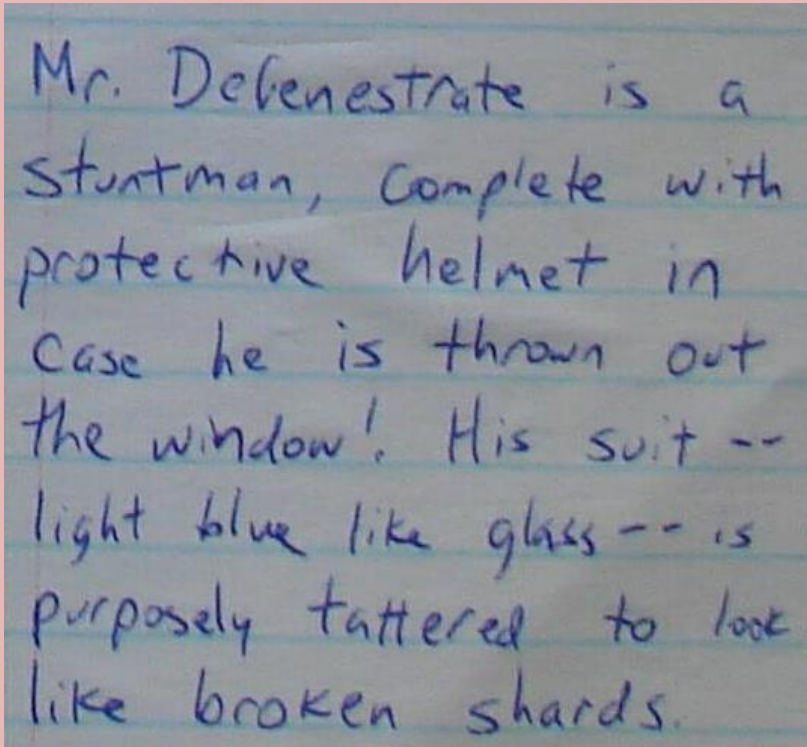 Mr. Defenestrate is a
stuntman, complete with
protective helmet in
case he is thrown out
the window! His suit --
light blue like glass -- is
purposely tattered to look
like broken shards.